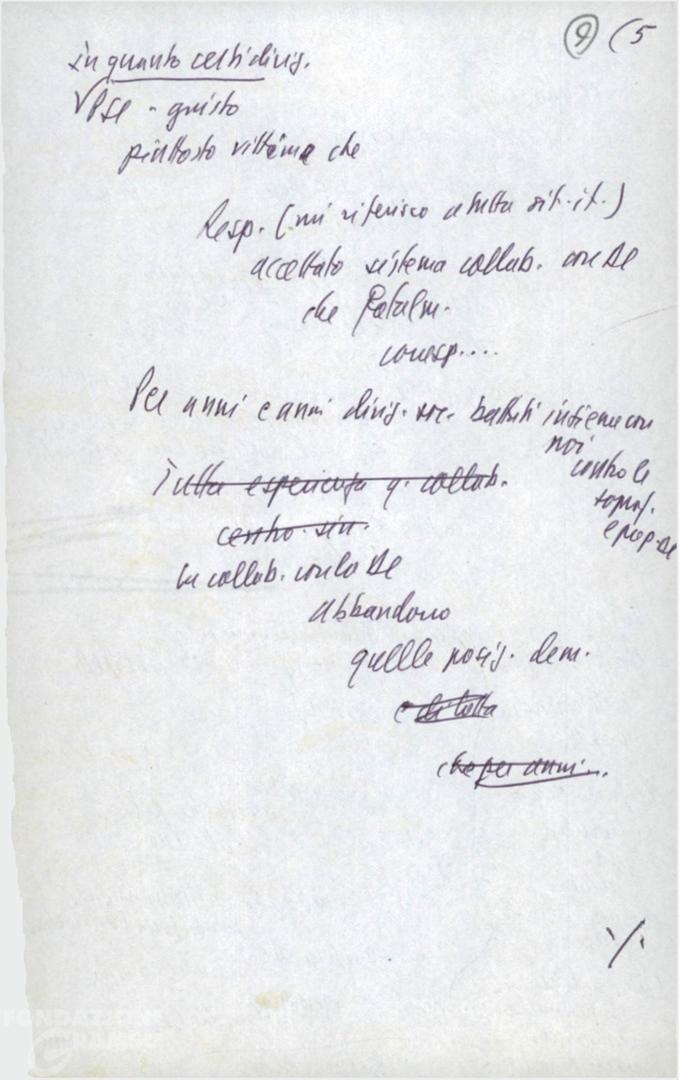 9 (5
in quanto certi dirig.
PSI - giusto
piuttosto vittima che
Resp. (mi riferisco a tutta sit. it.)
accettato sistema collab. con DC
che fatalm.
corresp....
Per anni e anni dirig. soc. battuti insieme con
noi
contro le
sopraf.
e prep. DC
Tutta esperienza q. collab.
centro sin.
In collab. con la DC
abbandono
quelle posiz. dem.
e di lotta
che per anni...
./.
FONDAZIONE
GRAMSCI